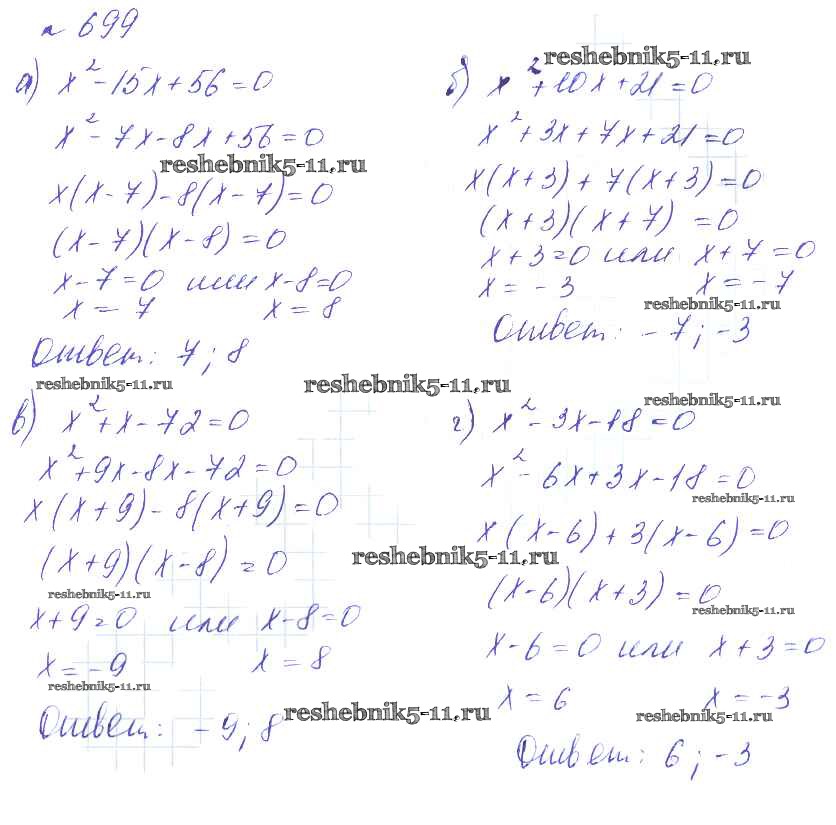 № 699
а) x² - 15x + 56 = 0
x² - 7x - 8x + 56 = 0
reshebnik5-11.ru
x(x - 7) - 8(x - 7) = 0
(x - 7)(x - 8) = 0
x - 7 = 0 или x - 8 = 0
x = 7 x = 8
Ответ: 7; 8
reshebnik5-11.ru
reshebnik5-11.ru
б) x² + 10x + 21 = 0
x² + 3x + 7x + 21 = 0
x(x + 3) + 7(x + 3) = 0
(x + 3)(x + 7) = 0
x + 3 = 0 или x + 7 = 0
x = - 3 x = - 7
reshebnik5-11.ru
Ответ: - 7; -3
reshebnik5-11.ru
в) x² + x - 72 = 0
x² + 9x - 8x - 72 = 0
x(x + 9) - 8(x + 9) = 0
(x + 9)(x - 8) = 0
reshebnik5-11.ru
reshebnik5-11.ru
x + 9 = 0 или x - 8 = 0
x = - 9 x = 8
reshebnik5-11.ru
Ответ: - 9; 8
reshebnik5-11.ru
reshebnik5-11.ru
г) x² - 3x - 18 = 0
x² - 6x + 3x - 18 = 0
reshebnik5-11.ru
x(x - 6) + 3(x - 6) = 0
(x - 6)(x + 3) = 0
reshebnik5-11.ru
x - 6 = 0 или x + 3 = 0
x = 6 x = -3
reshebnik5-11.ru
Ответ: 6; -3